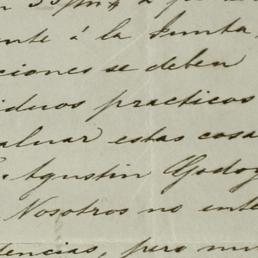 ente á la Junta
ciones se deben
iduos practicos
aluar estas cosa
Agustin Godoy
Nosotros no ente
tencias, pero mu